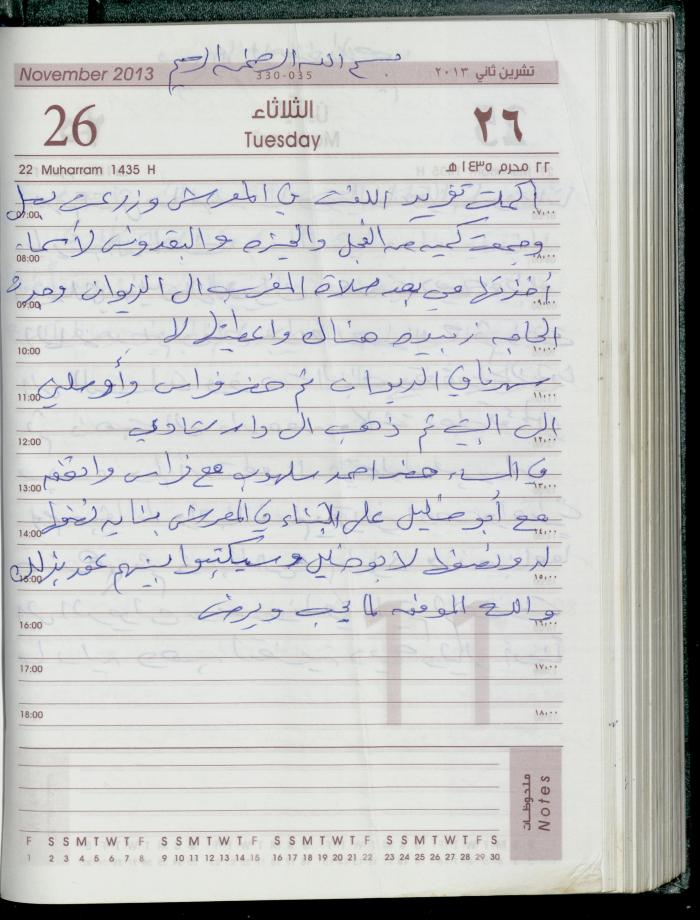 بسم الله الرحمن الرحيم
November 2013 330-035 تشرين ثاني ٢٠١٣
26 الثلاثاء ٢٦
Tuesday
22 Muharram 1435 H ٢٢ محرم ١٤٣٥ هـ
أكملت تفريد اللفت في المعرش وزرعت بصل
07:00 ٠٧:٠٠
وجمعت كمية من الفجل والخبيزه والبقدونس لأسماء
08:00 ٠٨:٠٠
أخذتها هي بعد صلاة المغرب الى الديوان وحدة
09:00 ٠٩:٠٠
الحاجه زبيده هناك واعطيتها لا
10:00 ١٠:٠٠
سهرنا في الديوان ثم حضر فراس وأوصلني
11:00 ١١:٠٠
الى البيت ثم ذهب الى دار شادي
12:00 ١٢:٠٠
في المساء حضر احمد سلهوب مع فراس واتفقو
13:00 ١٣:٠٠
مع أبو خليل على البناء في المعرش بنايه نصفها
14:00 ١٤:٠٠
له ونصفها لابو خليل وسيكتبوا بينهم عقد بذلك
15:00 ١٥:٠٠
والله الموفق لما يحب ويرضى
16:00 ١٦:٠٠
17:00 ١٧:٠٠
18:00 ١٨:٠٠
11
ملحوظات
Notes
F S S M T W T F S S M T W T F S S M T W T F S S M T W T F S
1 2 3 4 5 6 7 8 9 10 11 12 13 14 15 16 17 18 19 20 21 22 23 24 25 26 27 28 29 30